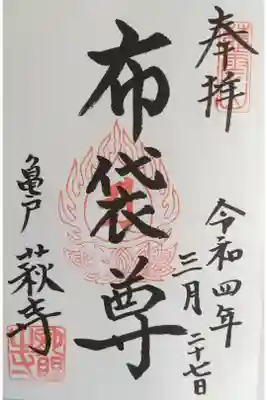 奉拝
令和四年
三月二十七日
布袋尊
亀戸
萩寺